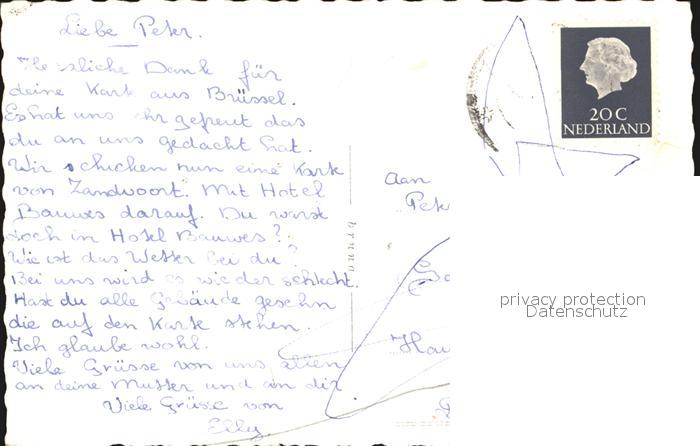 Liebe Peter.
Herzliche Dank für
deine Karte aus Brüssel.
Es hat uns sehr gefreut das
du an uns gedacht hat.
Wir schicken nun eine Karte
von Zandwoort. Mit Hotel
Bauwes darauf. Du warst
doch in Hotel Bauwes?
Wie ist das Wetter bei du?
Bei uns wird es wieder schlecht.
Hast du alle Gebäude gesehn
die auf den Karte stehen.
Ich glaube wohl.
Viele Grüsse von uns allen
an deine Mutter und an dir
Viele Grüsse von
Elly
20 C
NEDERLAND
Aan
Pete
Hau
privacy protection
Datenschutz